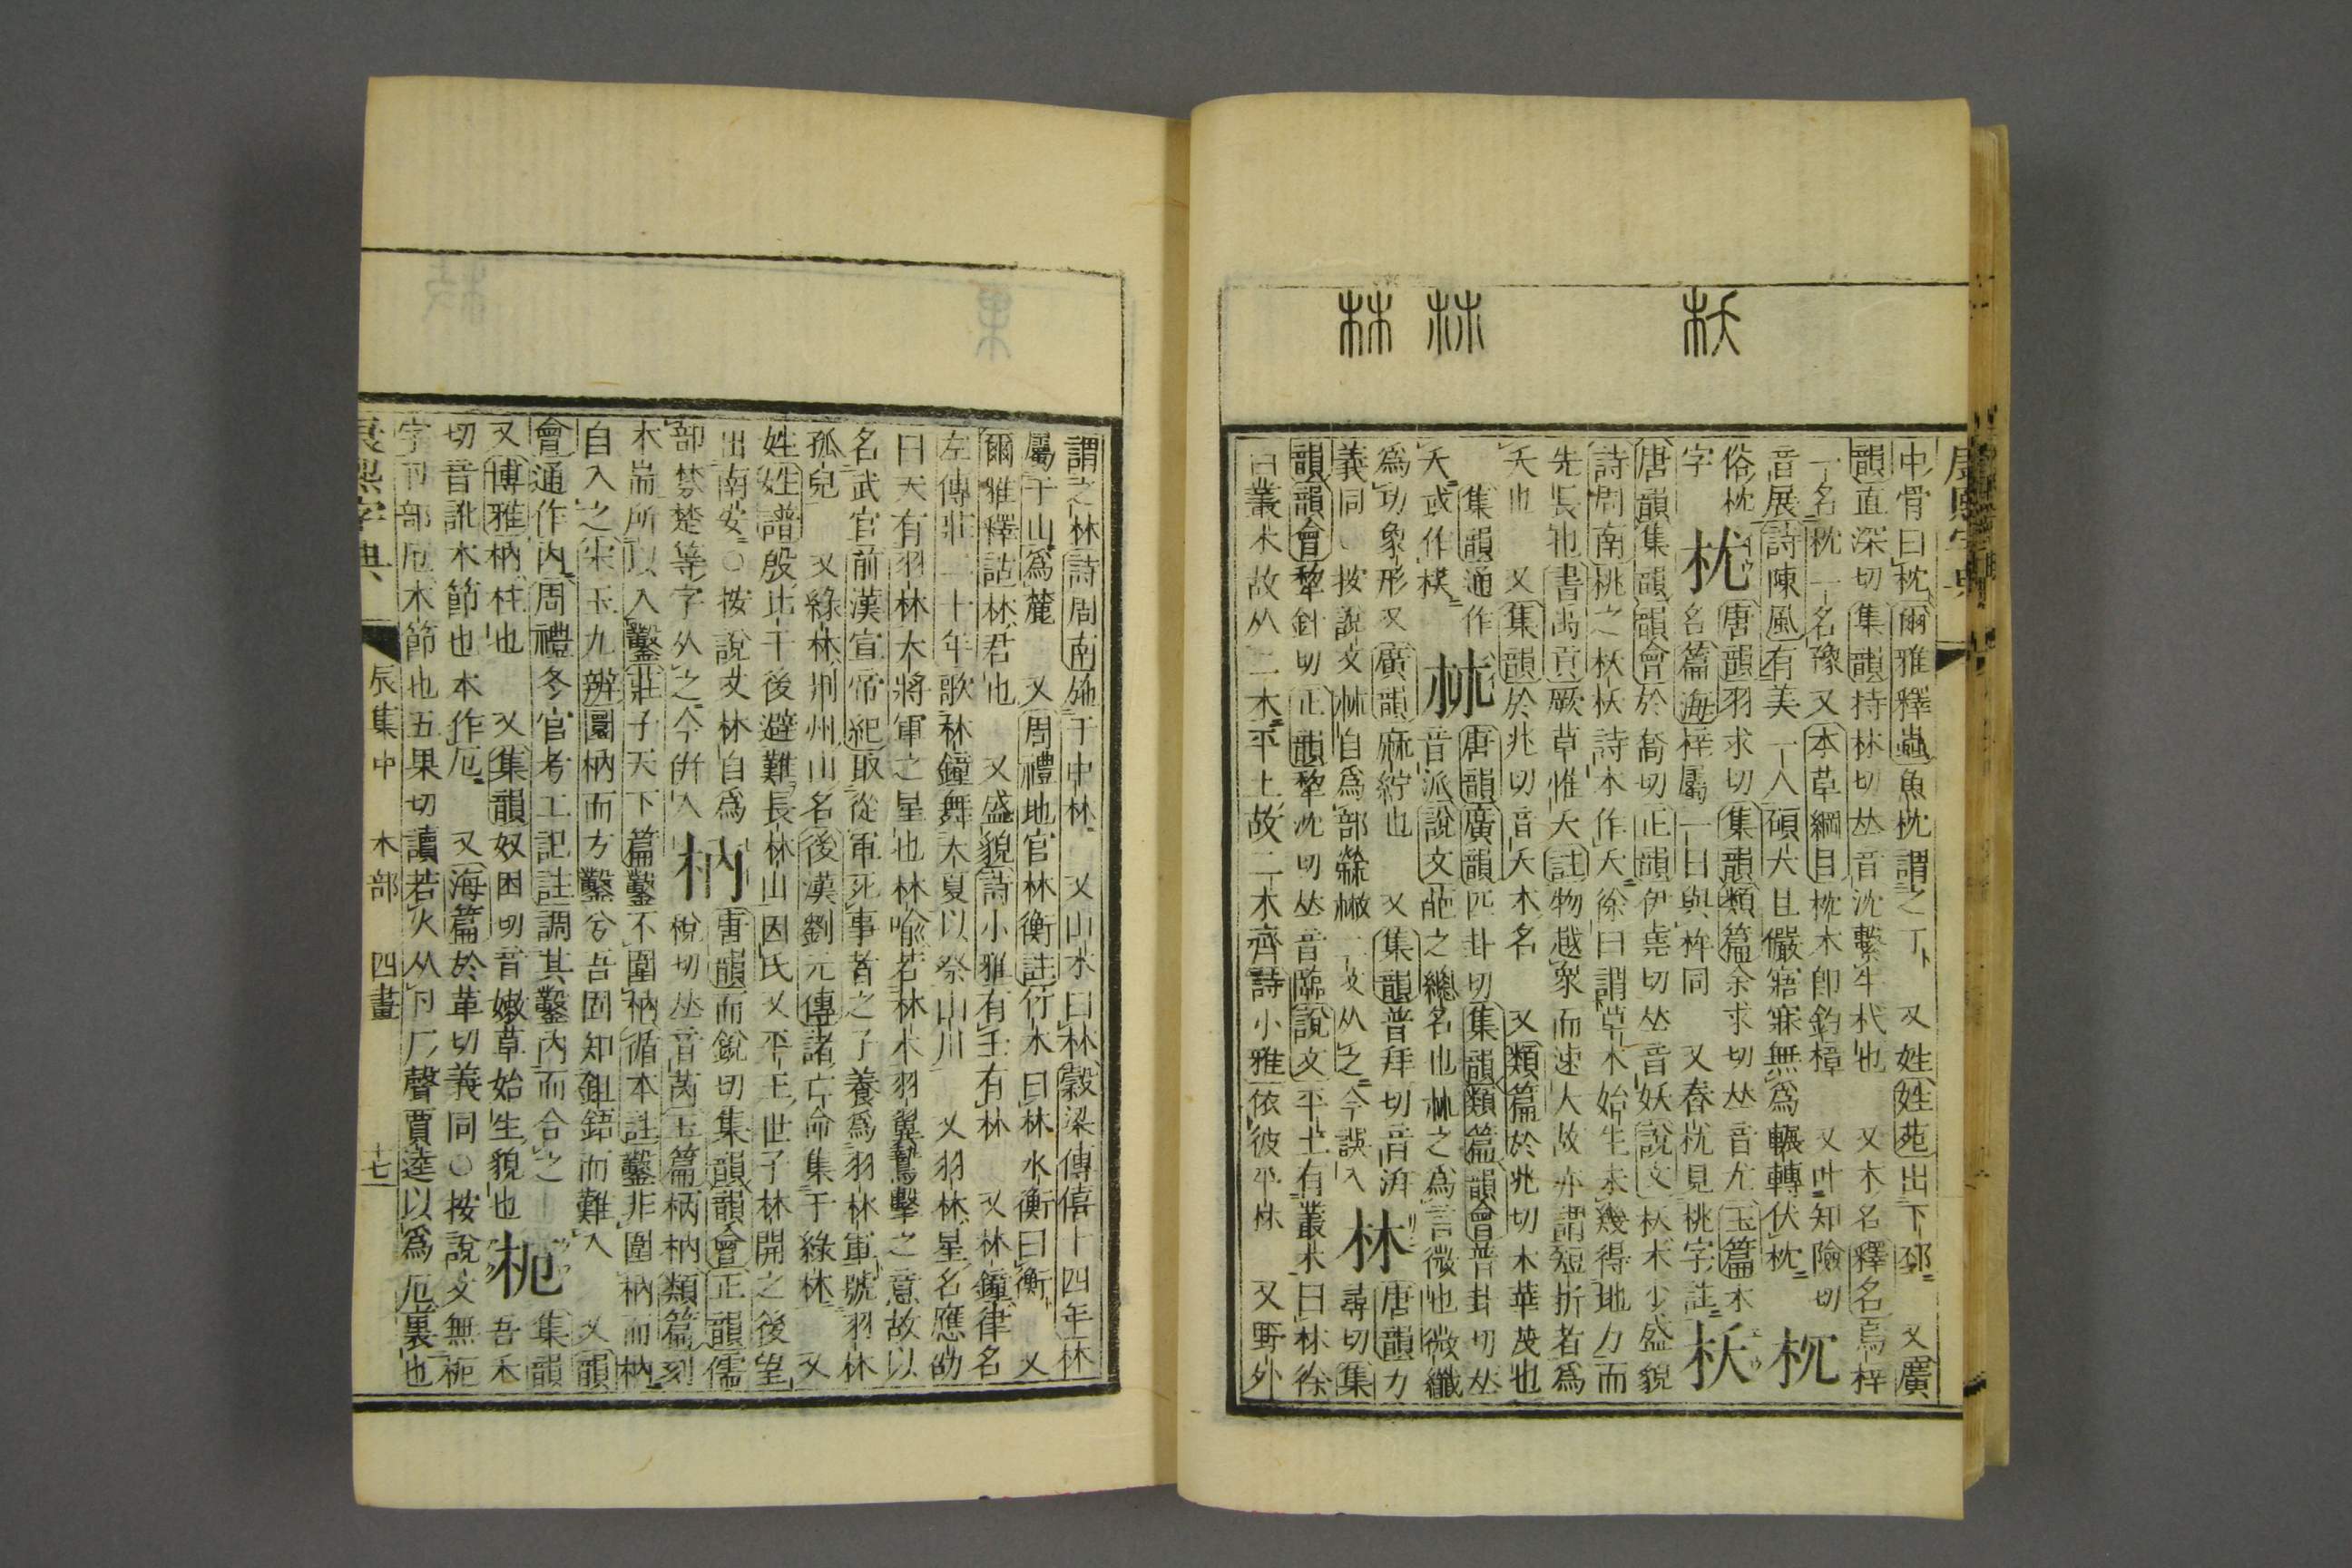 枖 𣏟 林
康熙字典
中骨曰枕爾雅釋蟲魚枕謂之丁 又姓姓苑出下邳 又廣
韻直深切集韻持林切𠀤音沈繫牛杙也 又木名釋名烏梓
一名枕一名豫又本草綱目枕木卽釣樟 又叶知險切
音展詩陳風有美一人碩大且儼寤寐無爲輾轉伏枕 枕
俗枕 唐韻羽求切集韻類篇余求切𠀤音尤玉篇木
字 枕 名篇海梓屬一曰與桙同 又舂枕見桃字註 枖
唐韻集韻韻會於喬切正韻伊堯切𠀤音妖說文枖木少盛貌
詩周南桃之枖枖詩本作夭徐曰謂草木始生未幾得地力而
先長也書禹貢厥草惟夭註物越衆而速人故亦謂短折者爲
夭也 又集韻於兆切音夭木名 又類篇於兆切木華茂也
集韻通作
夭或作楧 𣏟 唐韻廣韻匹卦切集韻類篇韻會普卦切𠀤
音派說文葩之總名也𣏟之爲言微也微纖
爲功象形又廣韻麻紵也 又集韻普拜切音湃
義同 按說文𣏟自爲部𣙗𢿱二文从之今誤入 林 唐韻力
尋切集
韻韻會犂針切正韻犂沈切𠀤音臨說文平土有叢木曰林徐
曰叢木故从二木平土故二木齊詩小雅依彼平林 又野外
謂之林詩周南施于中林 又山木曰林穀梁傳僖十四年林
屬于山爲麓 又周禮地官林衡註竹木曰林水衡曰衡 又
爾雅釋詁林君也 又盛貌詩小雅有壬有林 又林鐘律名
左傳莊二十年歌林鐘舞大夏以祭山川 又羽林星名應劭
曰天有羽林大將軍之星也林喻若林木羽翼鷙擊之意故以
名武官前漢宣帝紀取從軍死事者之子養爲羽林軍號羽林
孤兒 又綠林荆州山名後漢劉元傳諸亡命集于綠林 又
姓姓譜殷比干後避難長林山因氏又平王世子林開之後望
出南安○按說文林自爲
部禁楚等字从之今倂入 枘 唐韻而銳切集韻韻會正韻儒
梲切𠀤音芮玉篇柄枘類篇刻
木耑所以入鑿莊子天下篇鑿不圍枘循本註鑿非圍枘而枘
自入之宋玉九辨圜枘而方鑿兮吾固知鉏鋙而難入 又韻
會通作內周禮冬官考工記註調其鑿內而合之 集韻
又博雅枘柱也 又集韻奴困切音嫩草始生貌也 枙 吾禾
切音訛木節也本作厄 又海篇於革切義同○按說文無枙
字卩部厄木節也五果切讀若火从卩厂聲賈逵以爲厄裹也
康熙字典 辰集中 木部 四畫 十七